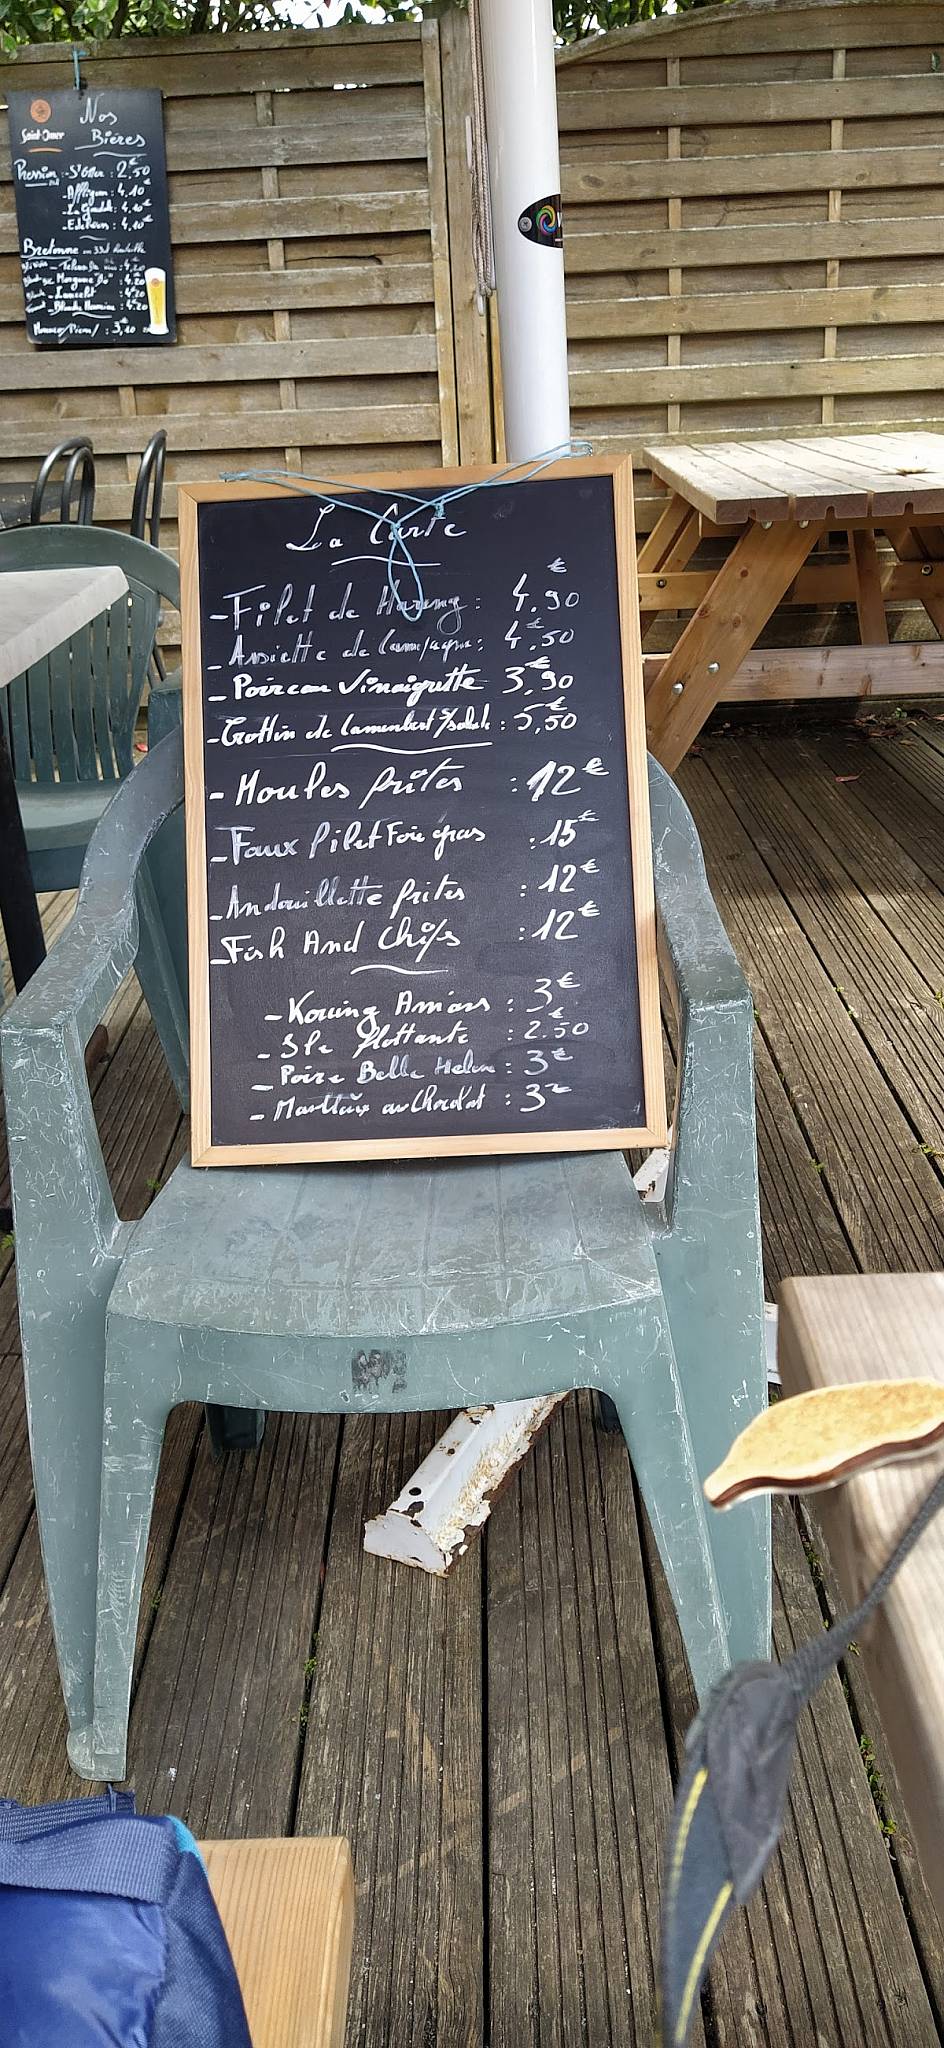 Nos
Saint-Omer Bières
Pression : - St Omer : 2.50€
- Affligem : 4.10€
: 4.10€
- Edelweiss : 4.10€
Bretonne en 33cl Bouteille
: 4.20
: 4.20
- Lancelot : 4.20
- Blanche Hermine : 4.20
Monaco/ : 3,10
La Carte
- Filet de Hareng : 4.90€
- Assiette de Campagne : 4.50€
- Poireau Vinaigrette 3,90€
- Crottin de Camembert /salade : 5,50€
- Moules frites : 12€
- Faux filet Foie gras : 15€
- Andouillette frites : 12€
- Fish And Chips : 12€
- Kouing Amans : 3€
- Ile flottante : 2.50€
- Poire Belle Helene : 3€
- au Chocolat : 3€